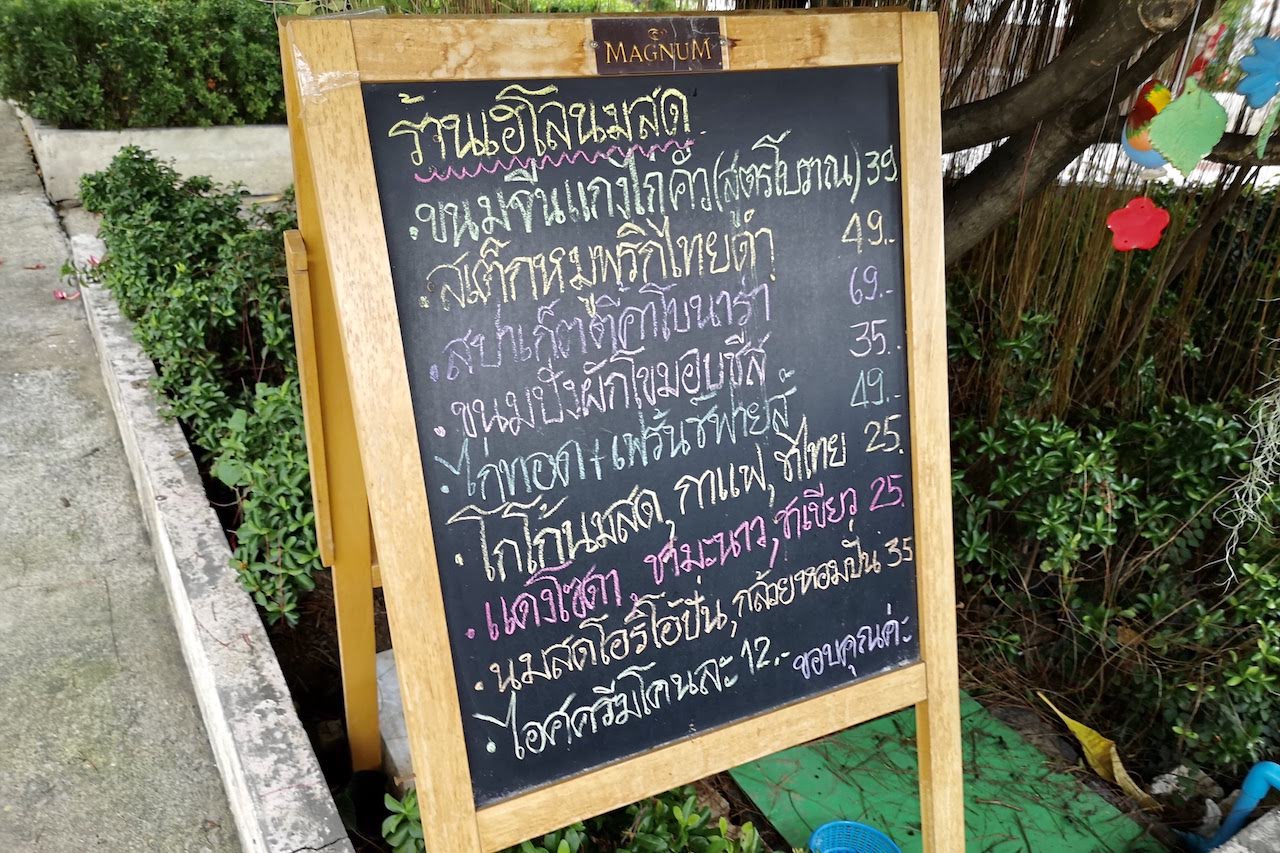 MAGNUM
ร้านเฮิโลนมสด
.ขนมจีนแกงไก่คั่ว(สูตรโบราณ) 39
.สเต็กหมูพริกไทยดำ 49.-
.สปาเก็ตตี้คาโบนาร่า 69.-
.ขนมปังผักโขมอบชีส 35.-
.ไก่ทอด+เฟร้นชัฟายส์ 49.-
.โกโก้นมสด, กาแฟ, ชาไทย 25.
.แดงโซดา ชามะนาว,ชาเขียว 25.
.นมสดโอริโอ้ปั่น,กล้วยหอมปั่น 35
.ไอศครีมโคนละ 12.- ขอบคุณค่ะ